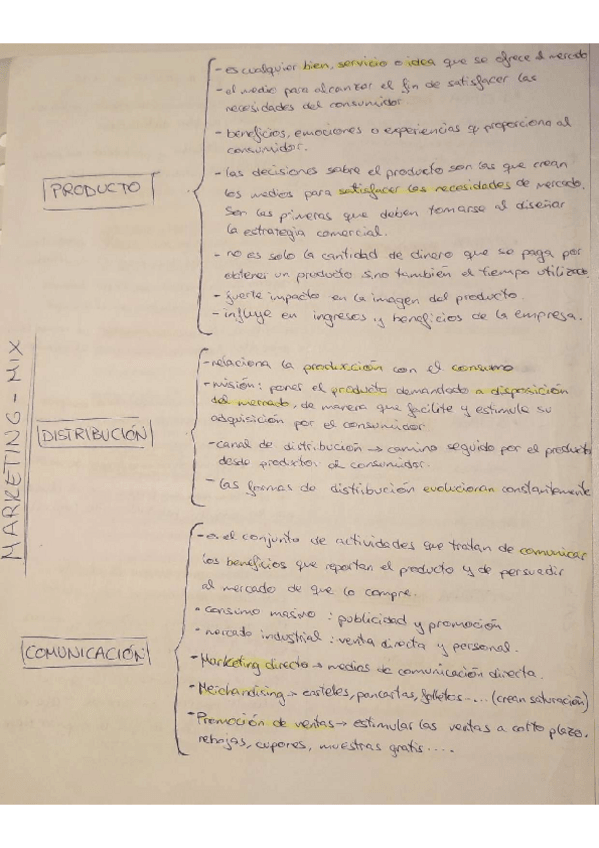 MARKETING - MIX
PRODUCTO
- es cualquier bien, servicio o idea que se ofrece al mercado
- el medio para alcanzar el fin de satisfacer las
necesidades del consumidor.
- beneficios, emociones o experiencias q proporciona al
consumidor.
- las decisiones sobre el producto son las que crean
los medios para satisfacer las necesidades de mercado.
Son las primeras que deben tomarse al diseñar
la estrategia comercial.
- no es solo la cantidad de dinero que se paga por
obtener un producto sino también el tiempo utilizado
- fuerte impacto en la imagen del producto.
- influye en ingresos y beneficios de la empresa.
DISTRIBUCIÓN
- relaciona la producción con el consumo
- misión: poner el producto demandado a disposición
del mercado, de manera que facilite y estimule su
adquisición por el consumidor
- canal de distribución → camino seguido por el producto
desde productor al consumidor.
- las formas de distribución evolucionan constantemente
COMUNICACIÓN
- es el conjunto de actividades que tratan de comunicar
los beneficios que reportan el producto y de persuadir
al mercado de que lo compre.
• consumo masivo : publicidad y promoción
• mercado industrial : venta directa y personal.
- Marketing directo → medios de comunicación directa.
- Merchandising → carteles, pancartas, folletos .... (crean saturación)
- Promoción de ventas → estimular las ventas a corto plazo,
rebajas, cupones, muestras gratis ....